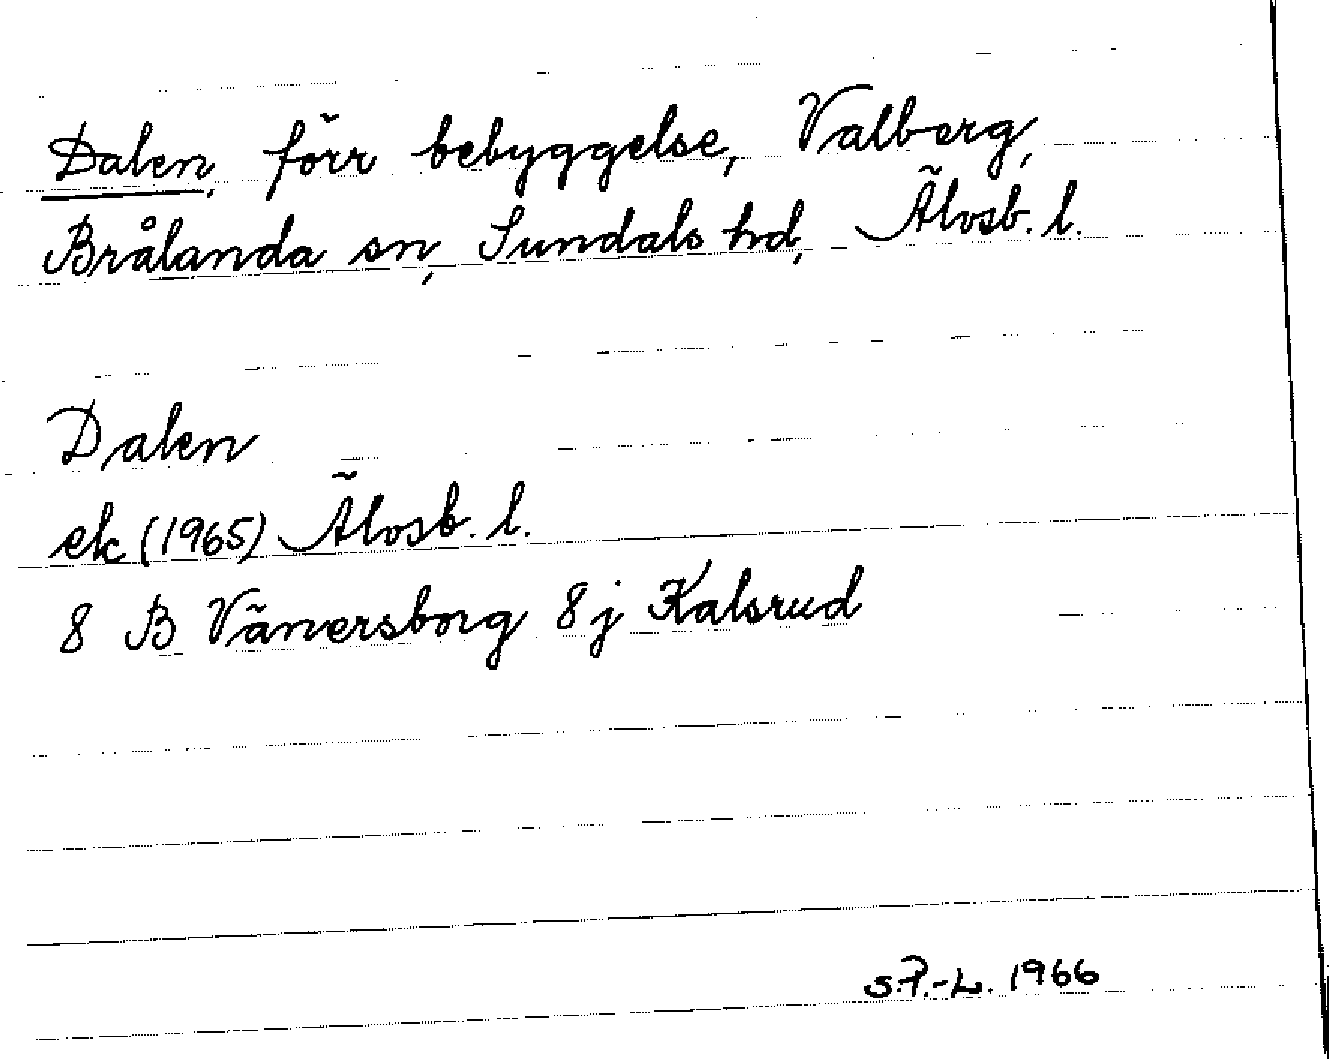 Dalen, förr bebyggelse, Valberg,
Brålanda sn, Sundals hd, Älvsb. l.
Dalen
ek (1965) Älvsb. l.
8 B Vänersborg 8 j Kalsrud
S.P.-L. 1966